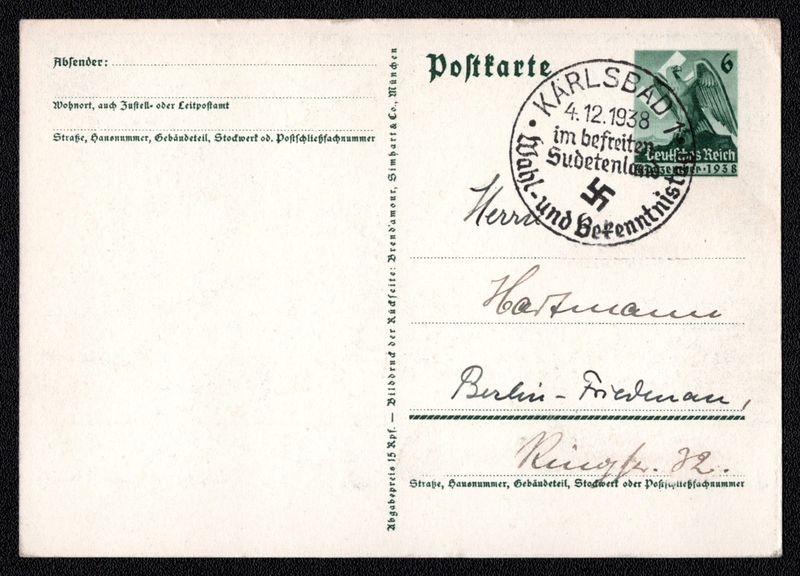 Absender:
Wohnort, auch Zustell- oder Leitpostamt
Straße, Hausnummer, Gebäudeteil, Stockwerk od. Postschließfachnummer
Abgabepreis 15 Rpf. — Bilddruck der Rückseite: Brend'amour, Simhart & Co., München
Postkarte
6
Deutsches Reich
Dezember · 1938
KARLSBAD 1
4.12.1938
im befreiten
Sudetenland
Wahl- und Bekenntnistag
Herrn
Hartmann
Berlin - Friedenau,
Ringstr. 32.
Straße, Hausnummer, Gebäudeteil, Stockwerk oder Postschließfachnummer